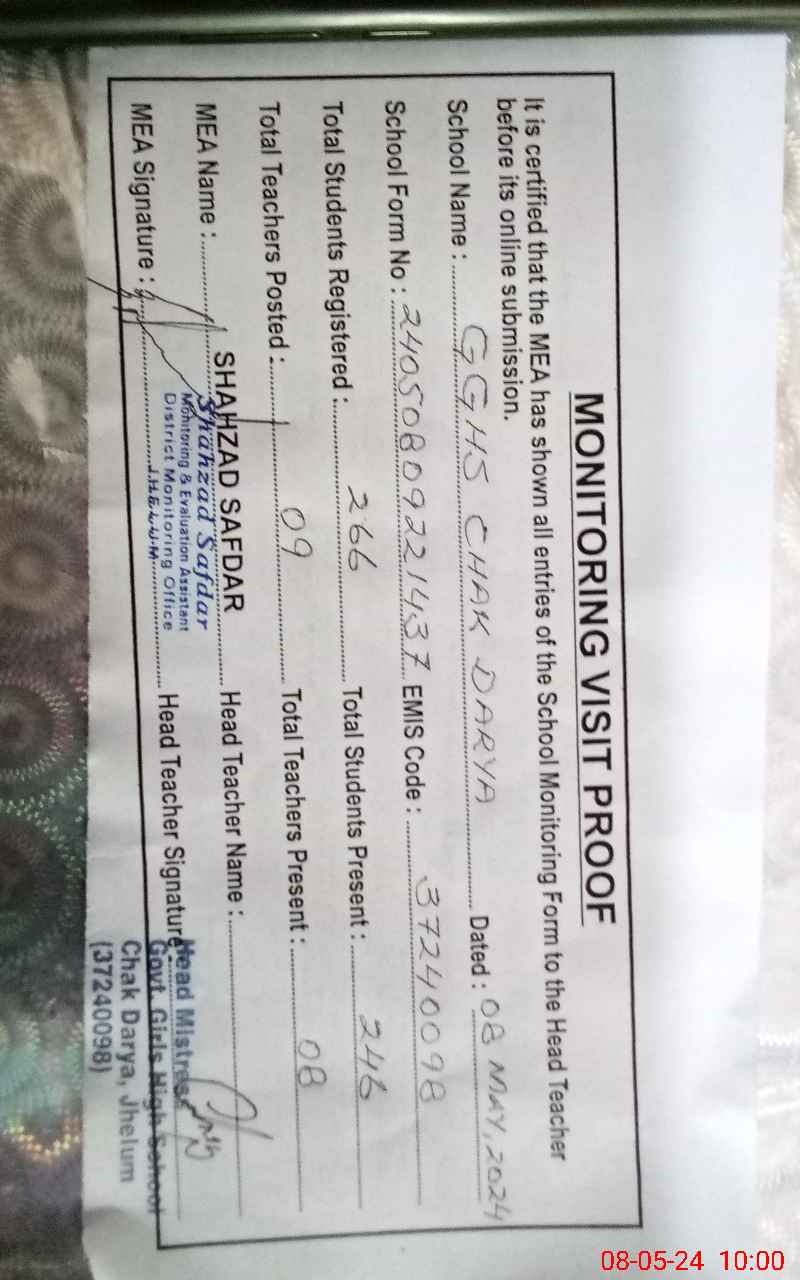 MONITORING VISIT PROOF
It is certified that the MEA has shown all entries of the School Monitoring Form to the Head Teacher
before its online submission.
School Name : GGHS CHAK DARYA Dated : 08 MAY, 2024
School Form No : 24050809221437 EMIS Code : 37240098
Total Students Registered : 266 Total Students Present : 246
Total Teachers Posted : 09 Total Teachers Present : 08
MEA Name : SHAHZAD SAFDAR Head Teacher Name :
Shahzad Safdar
Monitoring & Evaluation Assistant
District Monitoring Office
MEA Signature : Head Teacher Signature
Head Mistress
Govt. Girls High School
Chak Darya, Jhelum
(37240098)
08-05-24 10:00